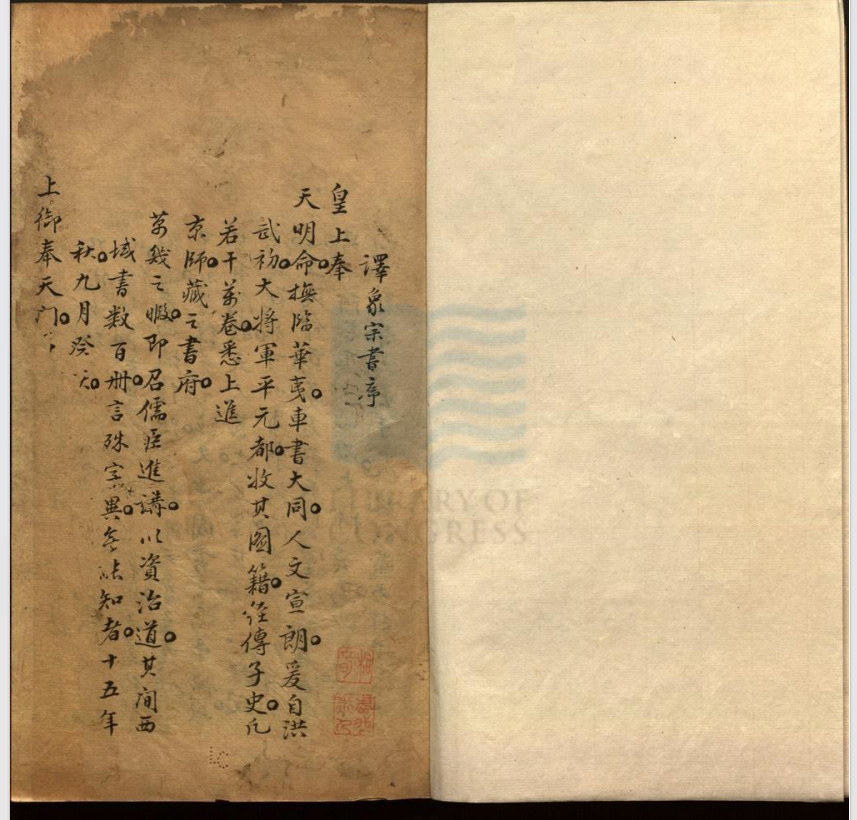 譯象宗書序
皇上奉
天明命。撫臨華夷。車書大同。人文宣朗。爰自洪
武初。大將軍平元都。收其圖籍。經傳子史。凡
若干萬卷。悉上進
京師。藏之書府。
萬幾之暇。即召儒臣進講。以資治道。其間西
域書數百冊。言殊字異。無能知者。十五年
秋九月癸亥。
上御奉天門。
LIBRARY OF
CONGRESS